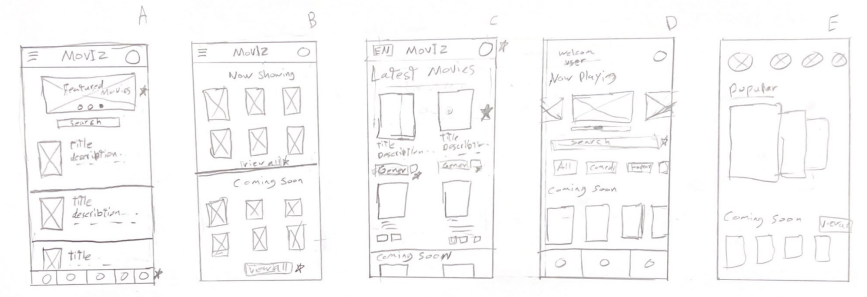 A
MovIZ
Featured
Movies
Search
title
description...
title
description...
title
B
MovIZ
Now Showing
view all
Coming Soon
view all
C
EN
MovIZ
Latest Movies
title
Description...
title
Description...
Gener
Gener
Coming Soon
D
welcom
user
Now Playing
Search
All
Comedy
Coming Soon
E
Popular
Coming Soon